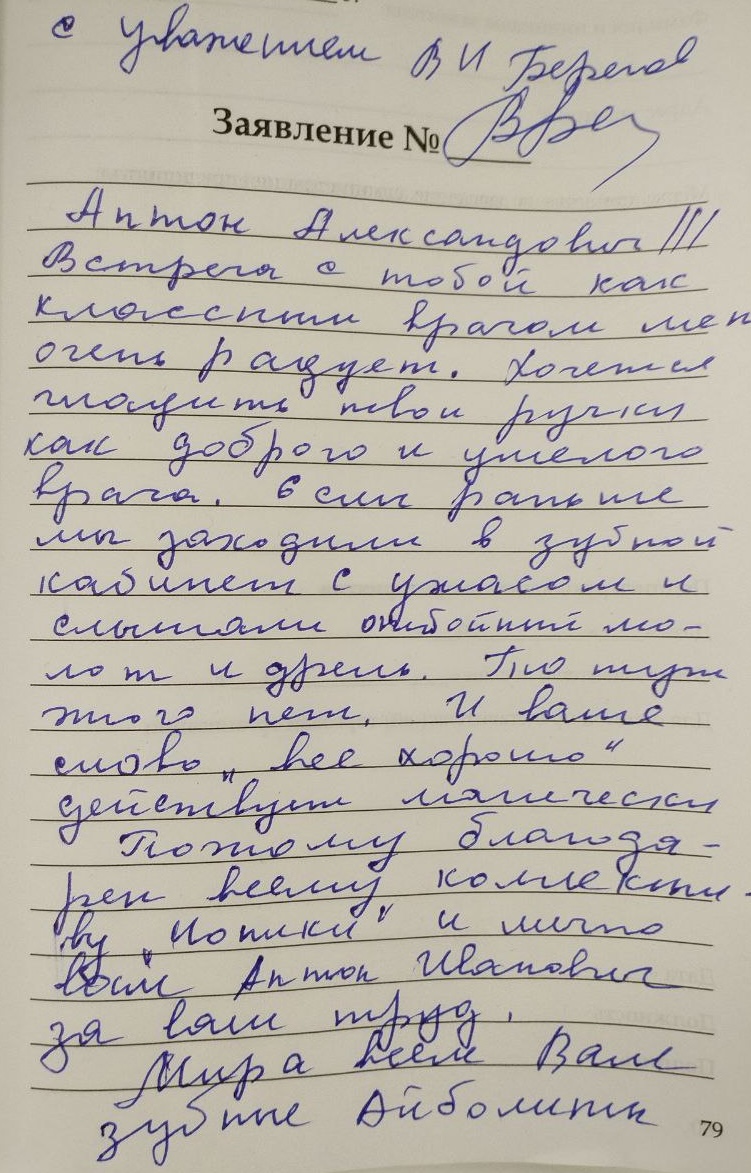 с уважением В И Берегов
Заявление №
Антон Александович!!!
Встреча с тобой как
классным врачом мен
очень радует. Хочется
гладить твои ручки
как доброго и умелого
врача. Если раньше
мы заходили в зубной
кабинет с ужасом и
слышали отбойный мо-
лот и дрель. То тут
этого нет. И ваше
слово „все хорошо“
действует магически
Поэтому благода-
рен всему коллекти-
ву и лично
вам Антон Иванович
за ваш труд.
Мира всем Вам
зубные Айболиты
79